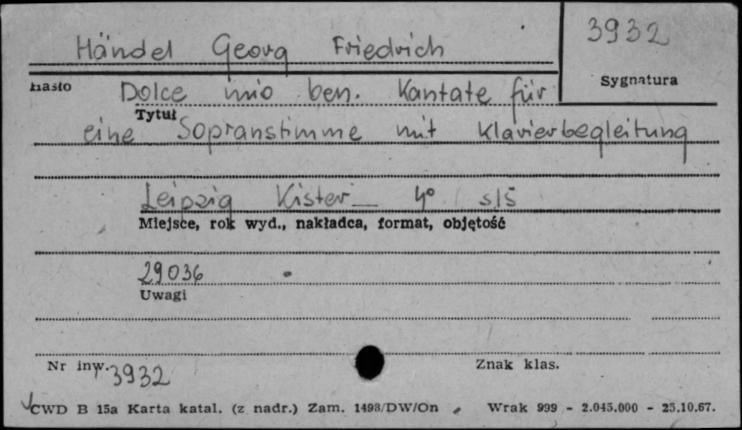 3932
Händel Georg Friedrich
hasło
Sygnatura
Dolce mio ben. Kantate für
Tytuł
eine Sopranstimme mit Klavierbegleitung
Leipzig Kister 4°
Miejsce, rok wyd., nakładca, format, objętość
29036
Uwagi
Nr inw. 3932
Znak klas.
CWD B 15a Karta katal. (z nadr.) Zam. 1498/DW/On Wrak 999 - 2.045.000 - 25.10.67.